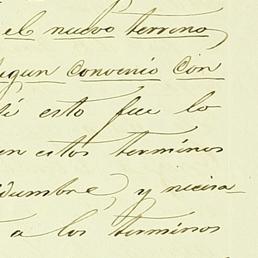 el nuevo terreno,
segun convenio con
esto fue lo
en estos terminos
dumbre, y necesa-
a los terminos